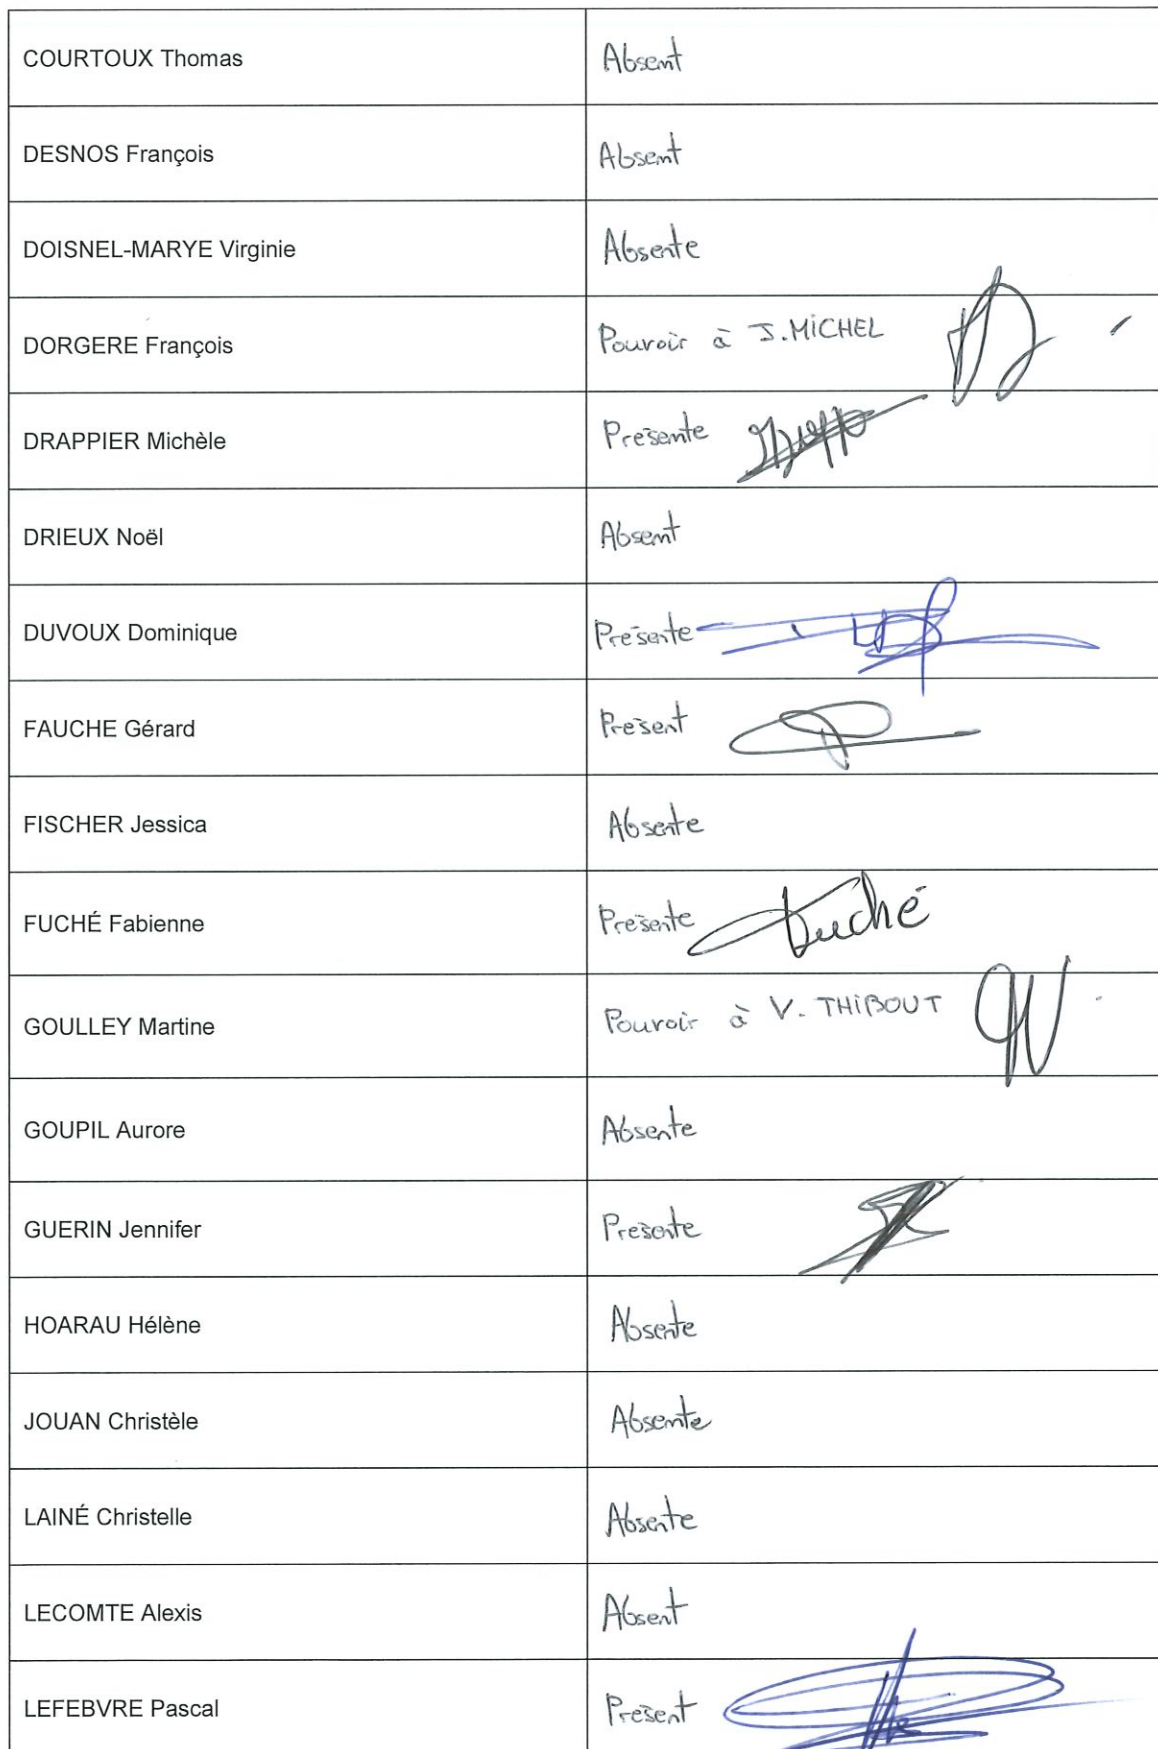 COURTOUX Thomas Absent
DESNOS François Absent
DOISNEL-MARYE Virginie Absente
DORGERE François Pouvoir à J. MICHEL
DRAPPIER Michèle Présente
DRIEUX Noël Absent
DUVOUX Dominique Présente
FAUCHE Gérard Présent
FISCHER Jessica Absente
FUCHÉ Fabienne Présente Fuché
GOULLEY Martine Pouvoir à V. THIBOUT
GOUPIL Aurore Absente
GUERIN Jennifer Présente
HOARAU Hélène Absente
JOUAN Christèle Absente
LAINÉ Christelle Absente
LECOMTE Alexis Absent
LEFEBVRE Pascal Présent